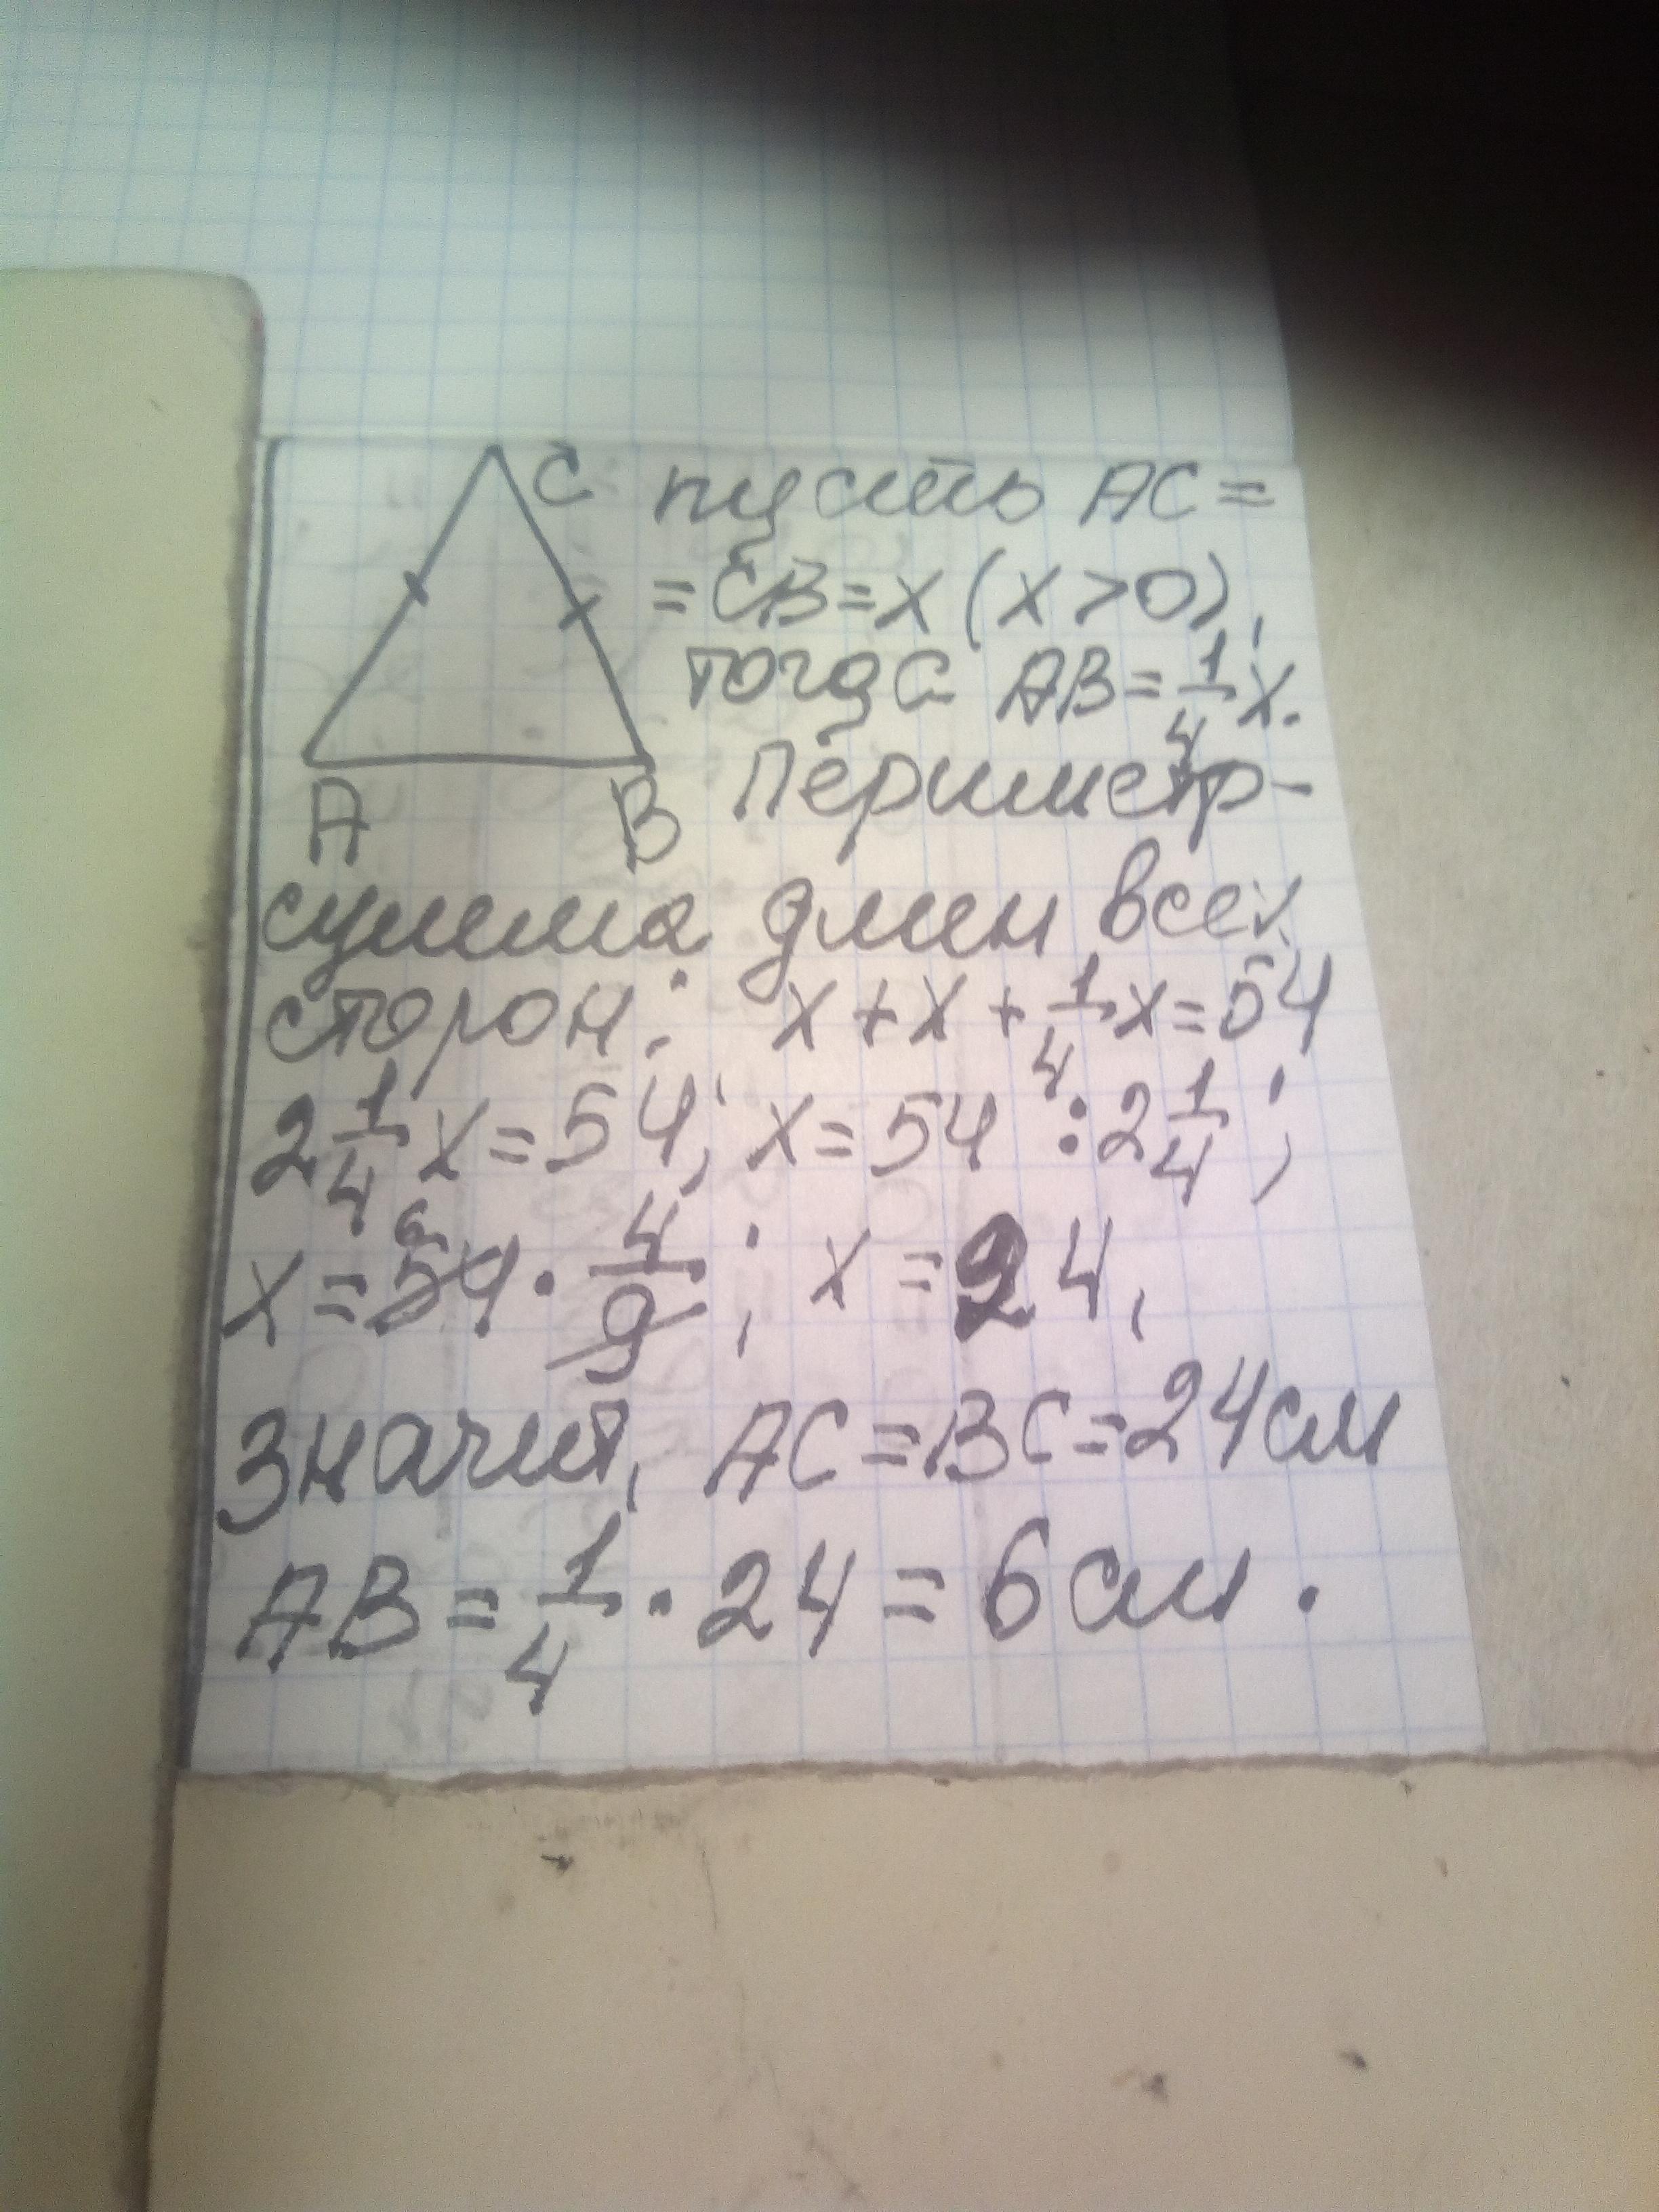 C пусть AC =
= CB = x (x > 0),
тогда AB = 1/4 x.
A B Периметр -
сумма длин всех
сторон: x + x + 1/4 x = 54
2 1/4 x = 54; x = 54 : 2 1/4;
6
x = 54 · 4/9; x = 24,
Значит, AC = BC = 24 см
AB = 1/4 · 24 = 6 см.